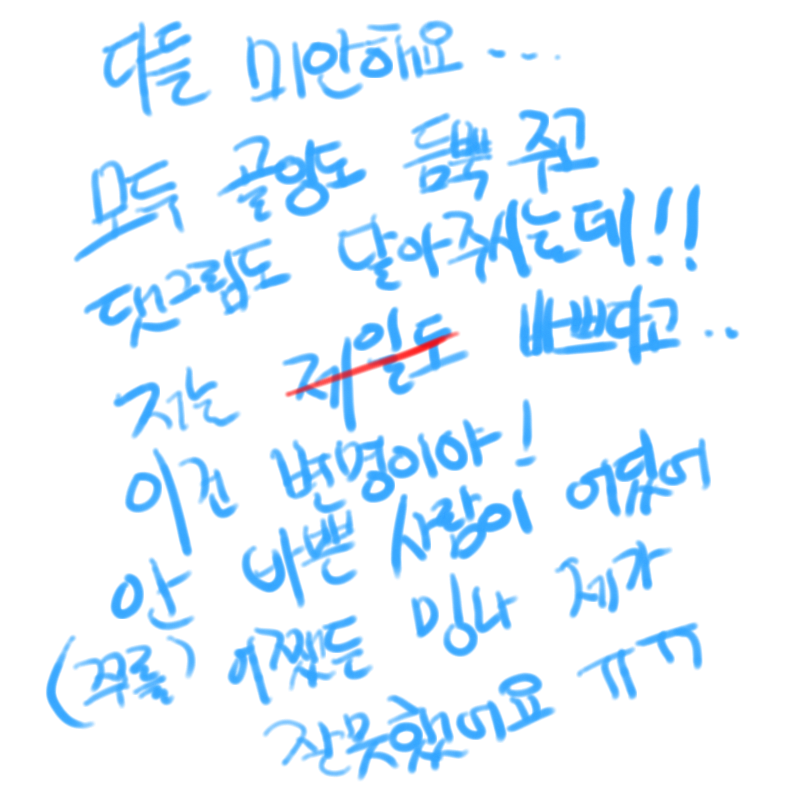 다들 미안해요....
모두 골앙도 듬뿍 주고
댓그림도 달아주시는데!!
저는 제일도 바쁘다고..
이건 변명이야!
안 바쁜 사람이 어딨어
(주륵) 어쨌든 밍나 제가
잘못했어요 ㅠㅠ